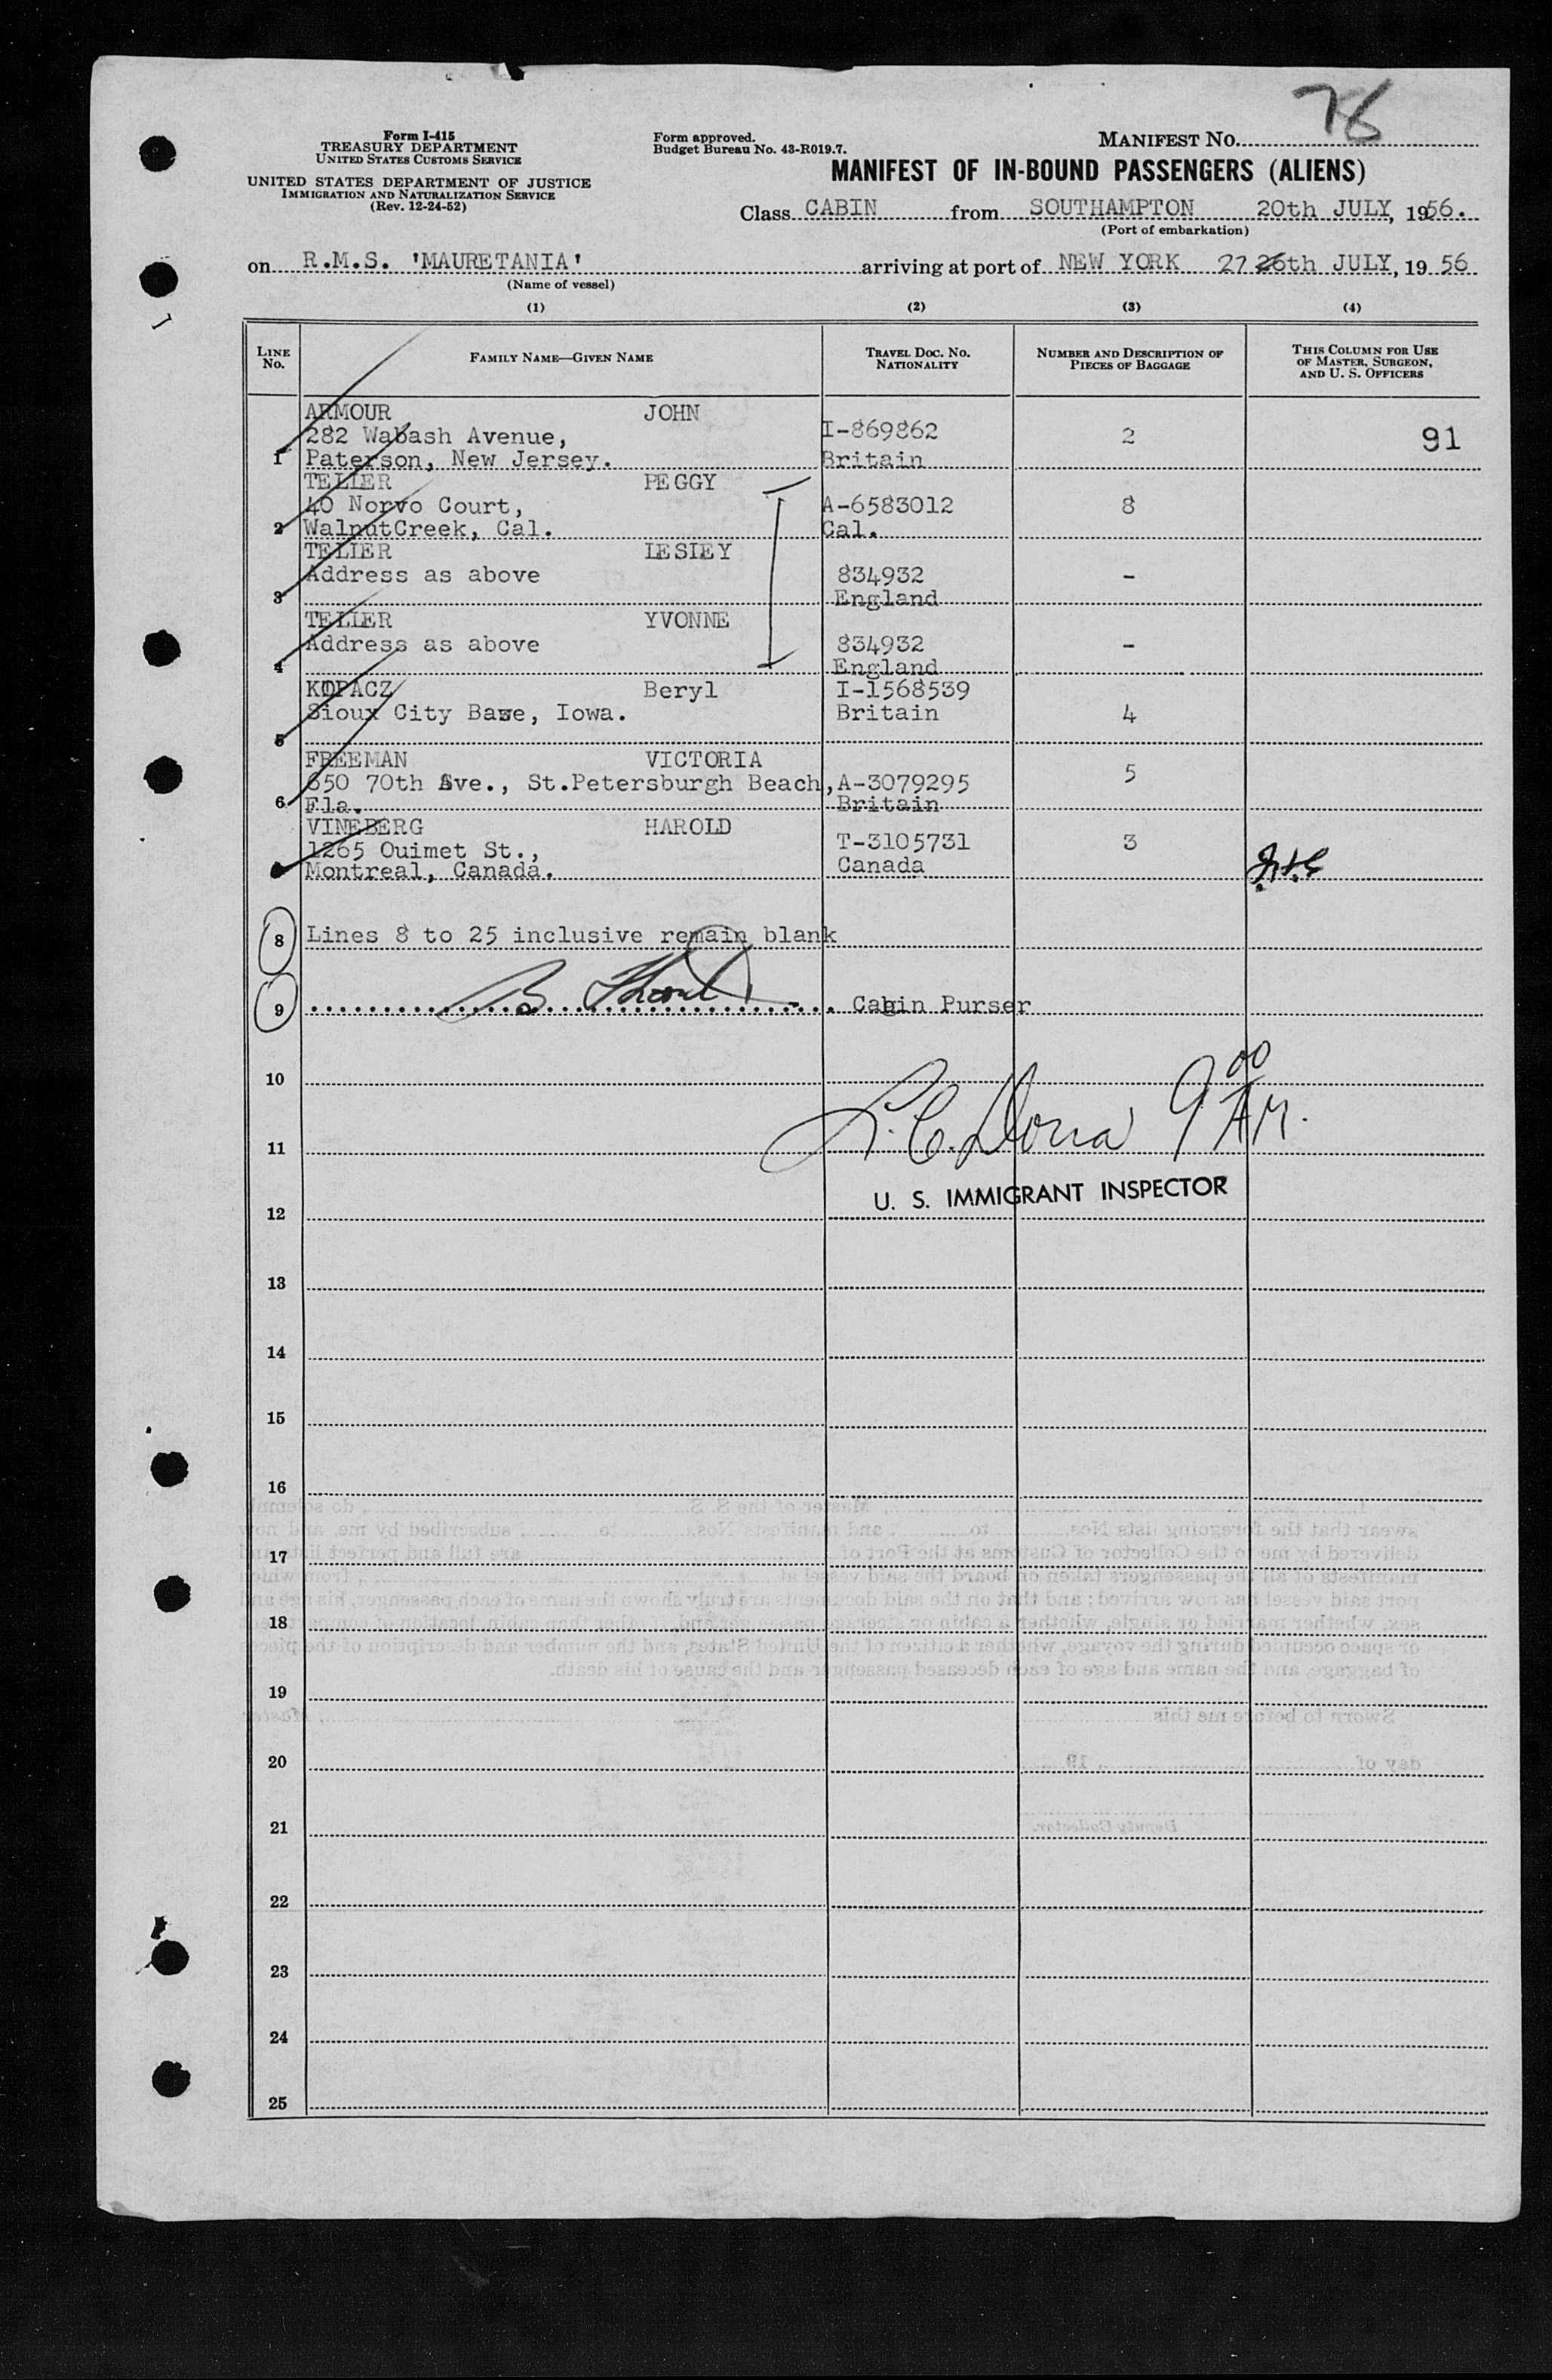 78
Form I-415
TREASURY DEPARTMENT
UNITED STATES CUSTOMS SERVICE
UNITED STATES DEPARTMENT OF JUSTICE
IMMIGRATION AND NATURALIZATION SERVICE
(Rev. 12-24-52)
Form approved.
Budget Bureau No. 43-R019.7.
MANIFEST NO.
MANIFEST OF IN-BOUND PASSENGERS (ALIENS)
Class CABIN from SOUTHAMPTON 20th JULY, 1956.
(Port of embarkation)
on R.M.S. 'MAURETANIA' arriving at port of NEW YORK 27 26th JULY, 19 56
(Name of vessel)
(1) (2) (3) (4)
LINE NO. FAMILY NAME—GIVEN NAME TRAVEL DOC. NO. NATIONALITY NUMBER AND DESCRIPTION OF PIECES OF BAGGAGE THIS COLUMN FOR USE OF MASTER, SURGEON, AND U. S. OFFICERS
ARMOUR JOHN
282 Wabash Avenue, I-869862 2 91
1 Paterson, New Jersey. Britain
TELLER PEGGY
40 Norvo Court, A-6583012 8
2 WalnutCreek, Cal. Cal.
TELLER LESLEY
Address as above 834932 -
3 England
TELLER YVONNE
Address as above 834932 -
4 England
KOPACZ Beryl I-1568539
Sioux City Base, Iowa. Britain 4
5
FREEMAN VICTORIA 5
650 70th Ave., St.Petersburgh Beach, A-3079295
6 Fla. Britain
VINEBERG HAROLD
1265 Ouimet St., T-3105731 3
Montreal, Canada. Canada
8 Lines 8 to 25 inclusive remain blank
9 Cabin Purser
10
9 00 A.M.
11
U. S. IMMIGRANT INSPECTOR
12
13
14
15
16
17
18
19
20
21
22
23
24
25